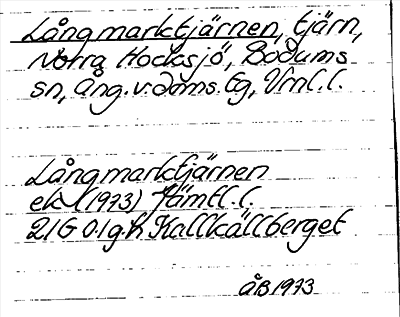 Långmarktjärnen, tjärn,
Norra Hocksjö, Bodums
sn, Ång. v:doms. tg, Vrnl. l.
Långmarktjärnen
ek (1973) Jämtl. l.
21G 0-1 g,h Kallkällberget
ÅB 1973